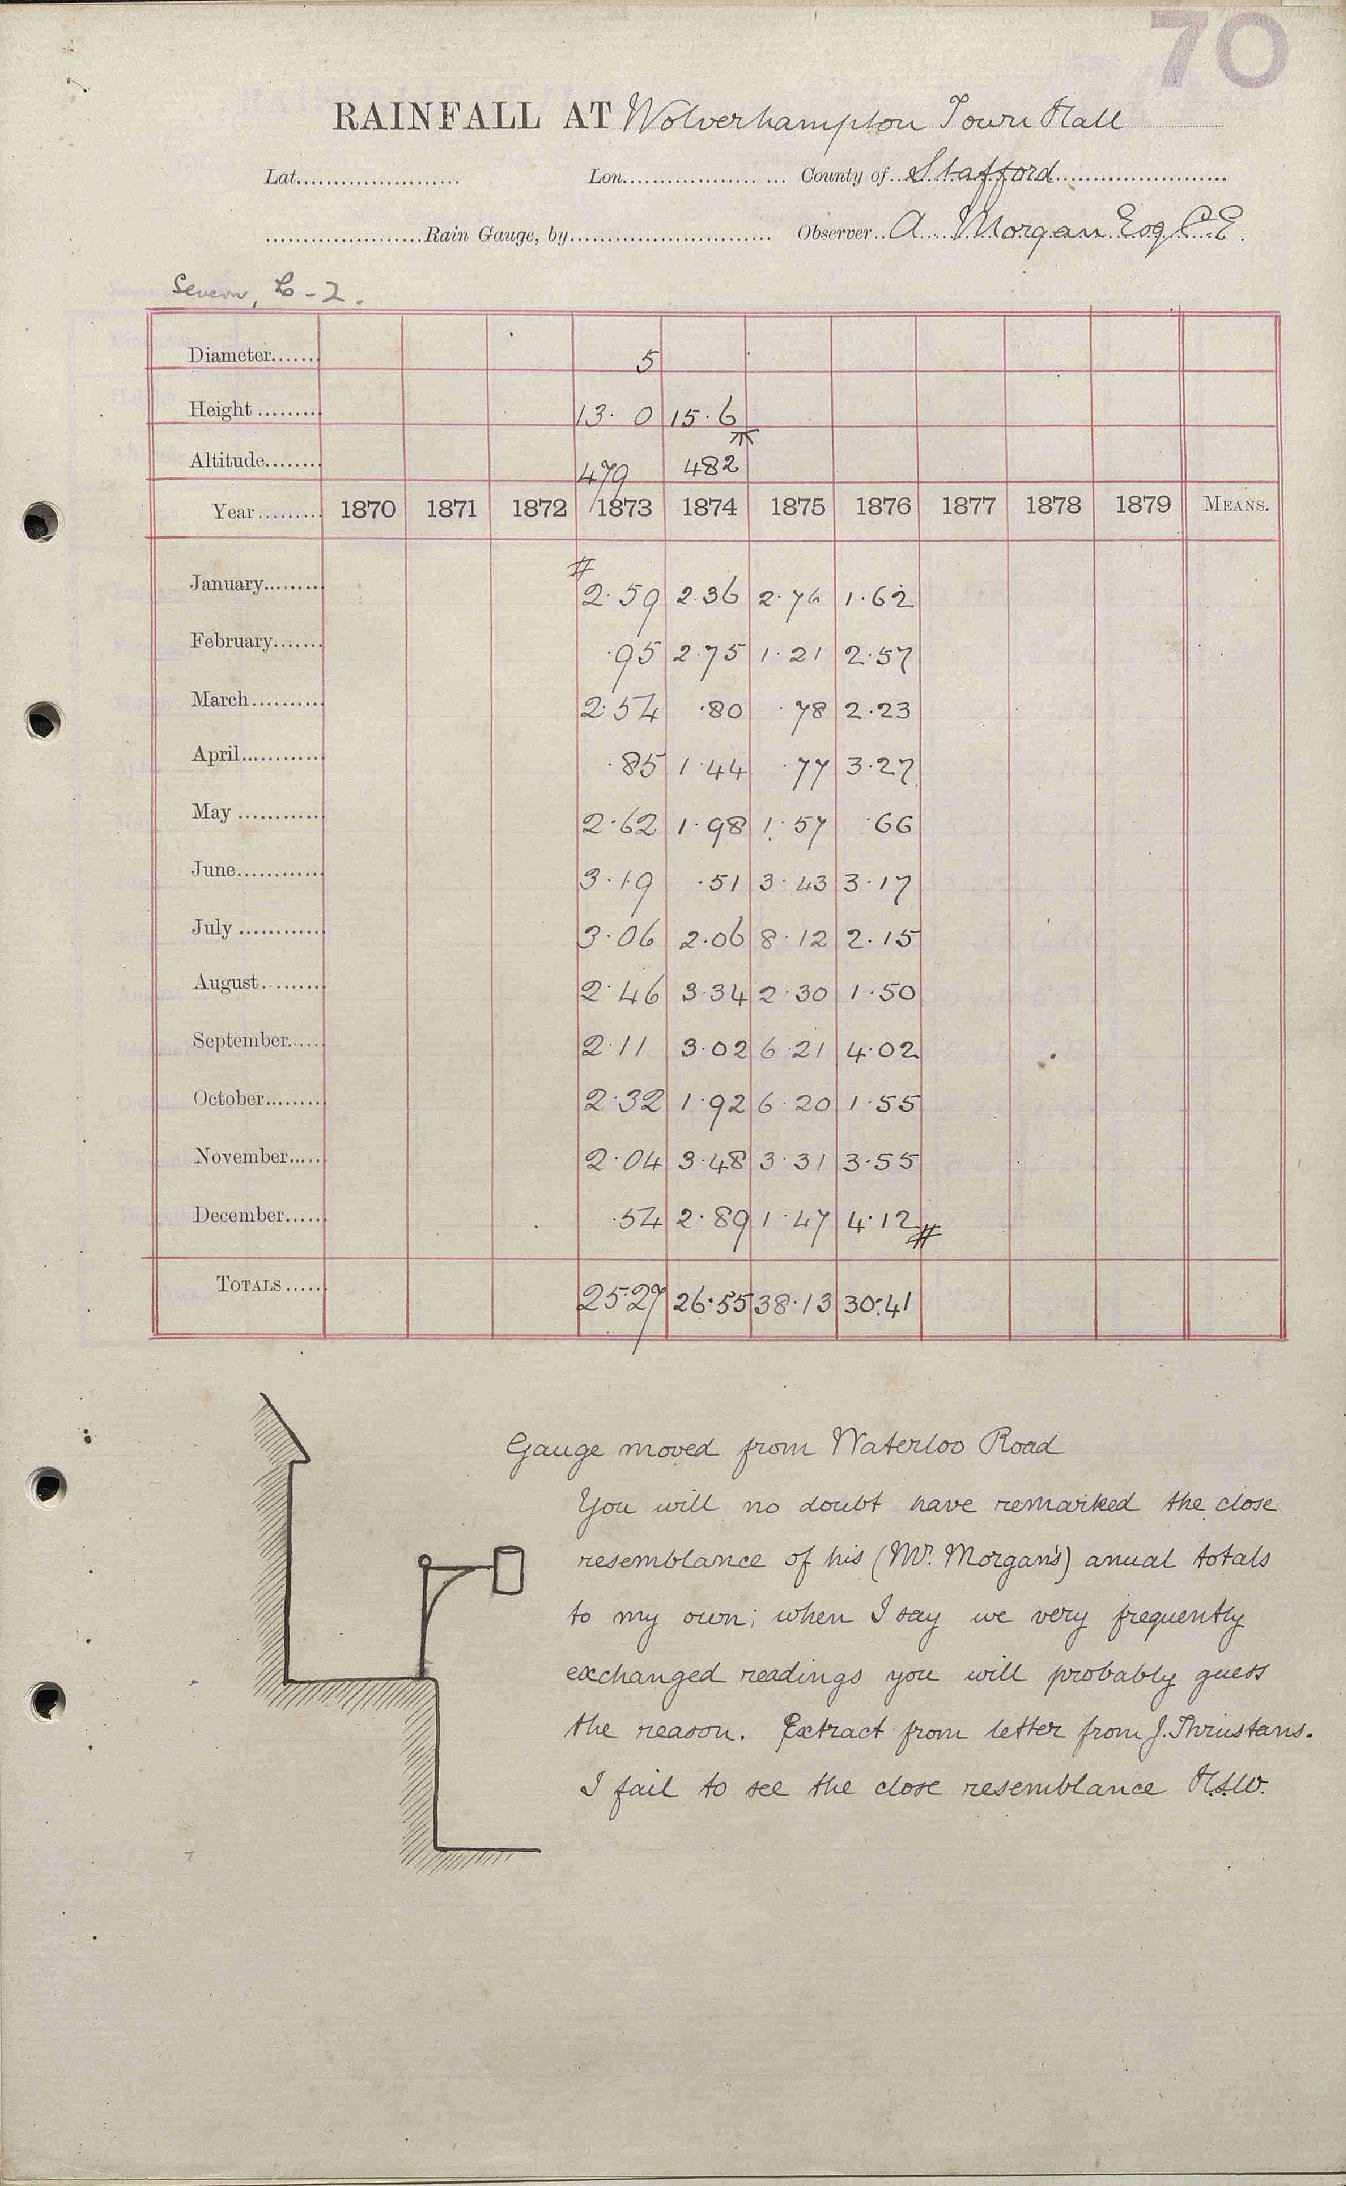 70
RAINFALL AT Wolverhampton Town Hall
Lat...................... Lon...................... County of Stafford
......................Rain Gauge, by........................... Observer A Morgan Esq C.E.
Severn,
Diameter....... 5
Height ......... 13. 0 15.6
Altitude........ 479 482
Year ......... 1870 1871 1872 1873 1874 1875 1876 1877 1878 1879 MEANS.
#
January......... 2.59 2.36 2.76 1.62
February....... .95 2.75 1.21 2.57
March........... 2.54 .80 .78 2.23
April............ .85 1.44 .77 3.27
May ............ 2.62 1.98 1.57 .66
June............ 3.19 .51 3.43 3.17
July ............ 3.06 2.06 8.12 2.15
August......... 2.46 3.34 2.30 1.50
September..... 2.11 3.02 6.21 4.02
October........ 2.32 1.92 6.20 1.55
November..... 2.04 3.48 3.31 3.55
December...... .54 2.89 1.47 4.12 #
TOTALS ...... 25.27 26.55 38.13 30.41
Gauge moved from Waterloo Road
You will no doubt have remarked the close
resemblance of his (Mr. Morgan's) anual totals
to my own; when I say we very frequently
exchanged readings you will probably guess
the reason. Extract from letter from J. Thrustans.
I fail to see the close resemblance